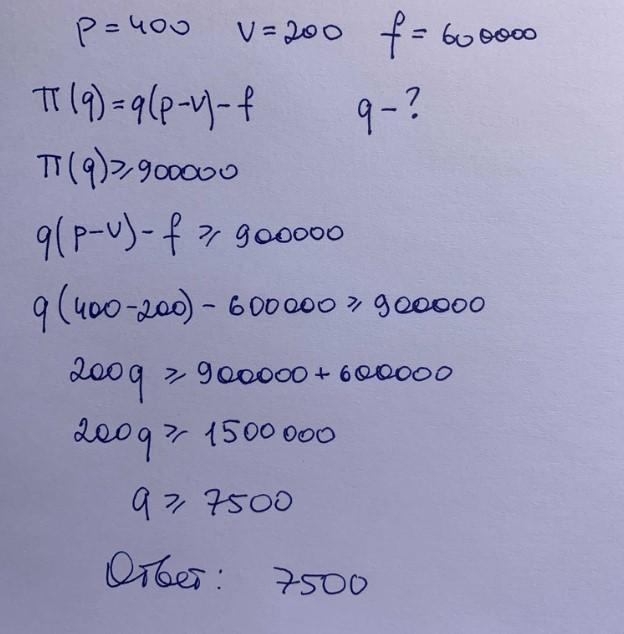 p = 400 v = 200 f = 600000
π(q) = q(p-v) - f q - ?
π(q) ⩾ 900000
q(p-v) - f ⩾ 900000
q(400-200) - 600000 ⩾ 900000
200q ⩾ 900000 + 600000
200q ⩾ 1500 000
q ⩾ 7500
Ответ: 7500